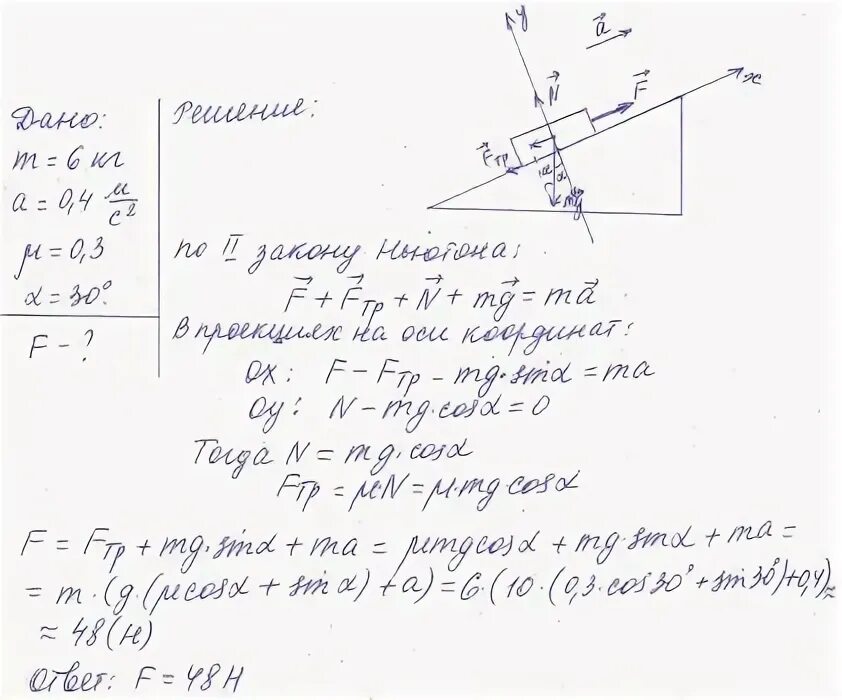 y
a⃗
x
N⃗
F⃗
F⃗тр
α
α
mg⃗
Дано:
m = 6 кг
a = 0,4 м/с²
μ = 0,3
α = 30°
F - ?
Решение:
по II закону Ньютона:
F⃗ + F⃗тр + N⃗ + mg⃗ = ma⃗
В проекциях на оси координат:
OX: F - Fтр - mg·sinα = ma
OY: N - mg·cosα = 0
Тогда N = mg·cosα
Fтр = μ·N = μ·mg·cosα
F = Fтр + mg·sinα + ma = μmgcosα + mg·sinα + ma =
= m·(g·(μcosα + sinα) + a) = 6·(10·(0,3·cos30° + sin30°) + 0,4) ≈
≈ 48 (Н)
Ответ: F = 48 Н